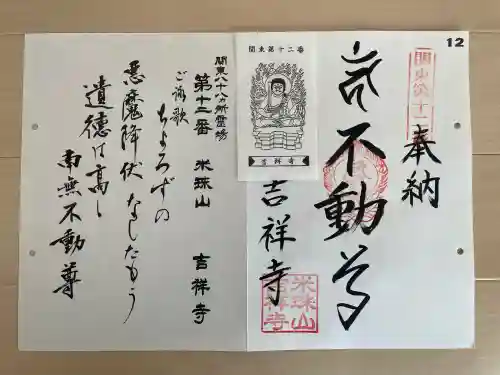 12
関東第十二
奉納
不動尊
吉祥寺
米珠山
吉祥寺
関東第十二番
吉祥寺
関東八十八カ所霊場
第十二番 米珠山 吉祥寺
ご詠歌
ちよろずの
悪魔降伏 なしたもう
遺徳は高し
南無不動尊